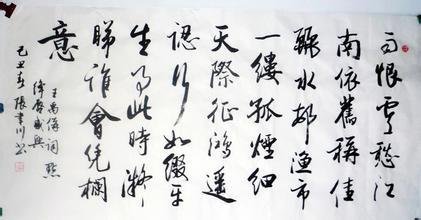 雨恨雲愁江
南依舊稱佳
麗水邨漁市
一缕孤煙細
天際征鴻遥
認行如缀平
生事此時凝
睇誰會凭欄
意
王禹偁詞點
绛唇感興
己丑春張書川書